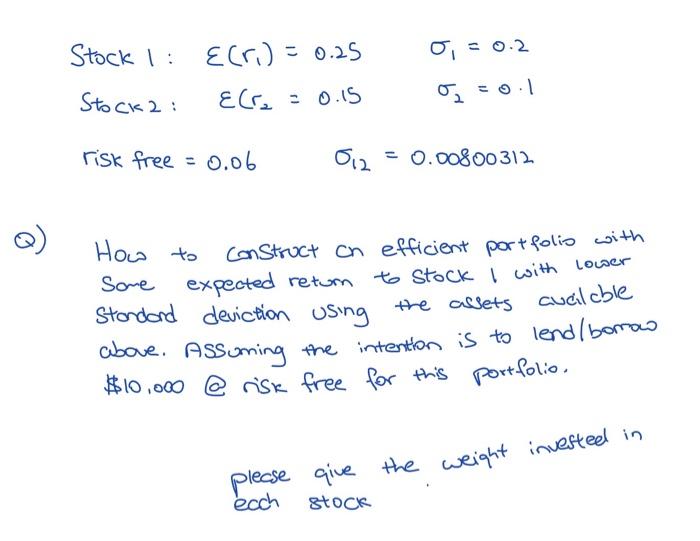 Stock 1 : E(r₁) = 0.25 σ₁ = 0.2
Stock 2 : E(r₂ = 0.15 σ₂ = 0.1
risk free = 0.06 σ₁₂ = 0.00800312
Q) How to construct an efficient portfolio with
same expected return to stock 1 with lower
standard deviation using the assets available
above. Assuming the intention is to lend/borrow
$10,000 @ risk free for this portfolio.
please give the weight invested in
each stock